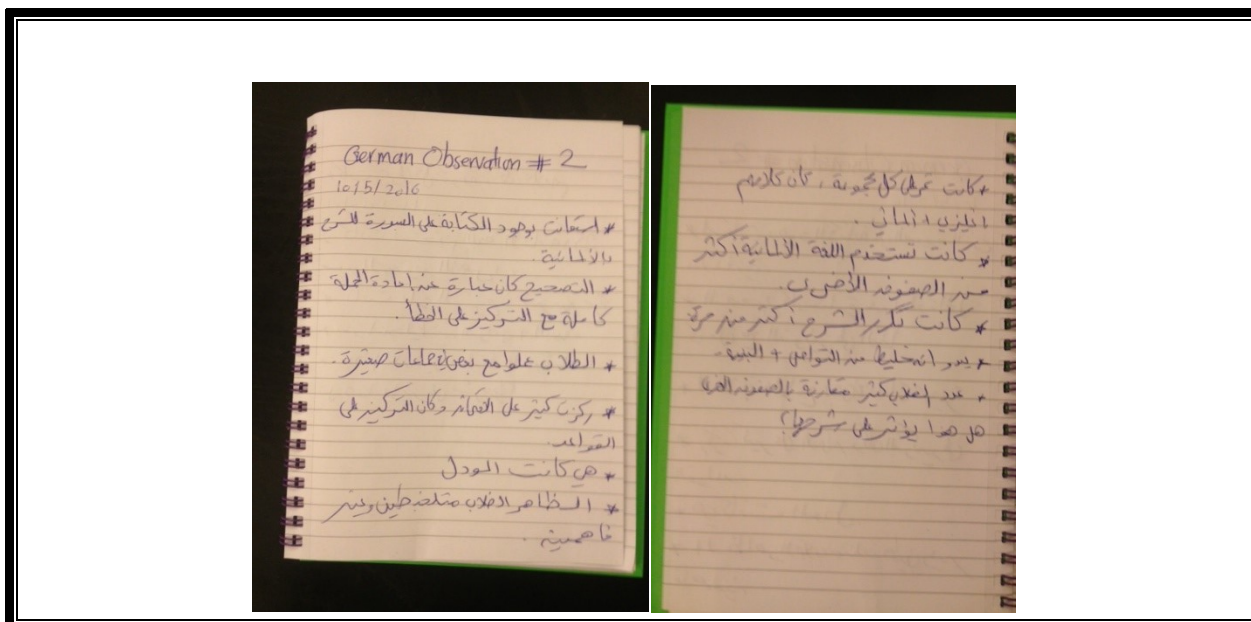 German Observation # 2
10/5/2016
* استعانت بوجود الكتابة على السبورة للشرح
بالألمانية.
* التصحيح كان عبارة عن إعادة الجملة
كاملة مع التركيز على الخطأ.
* الطلاب عملوا مع بعض جماعات صغيرة.
* ركزت كثير على وكان التركيز على
القواعد.
* هي كانت المودل
* الطلاب متلخبطين وغير
فاهمين.
* كانت تمر على كل مجموعة، كان كلامهم
انليزي الماني.
* كانت تستخدم اللغة الألمانية أكثر
من الصفوف الأخرى.
* كانت تكرر الشرح أكثر من مرة
* يبدو انه خليط من +
* عدد الطلاب كثير مقارنة بالصفوف
هل هدا يؤثر على شرحها؟